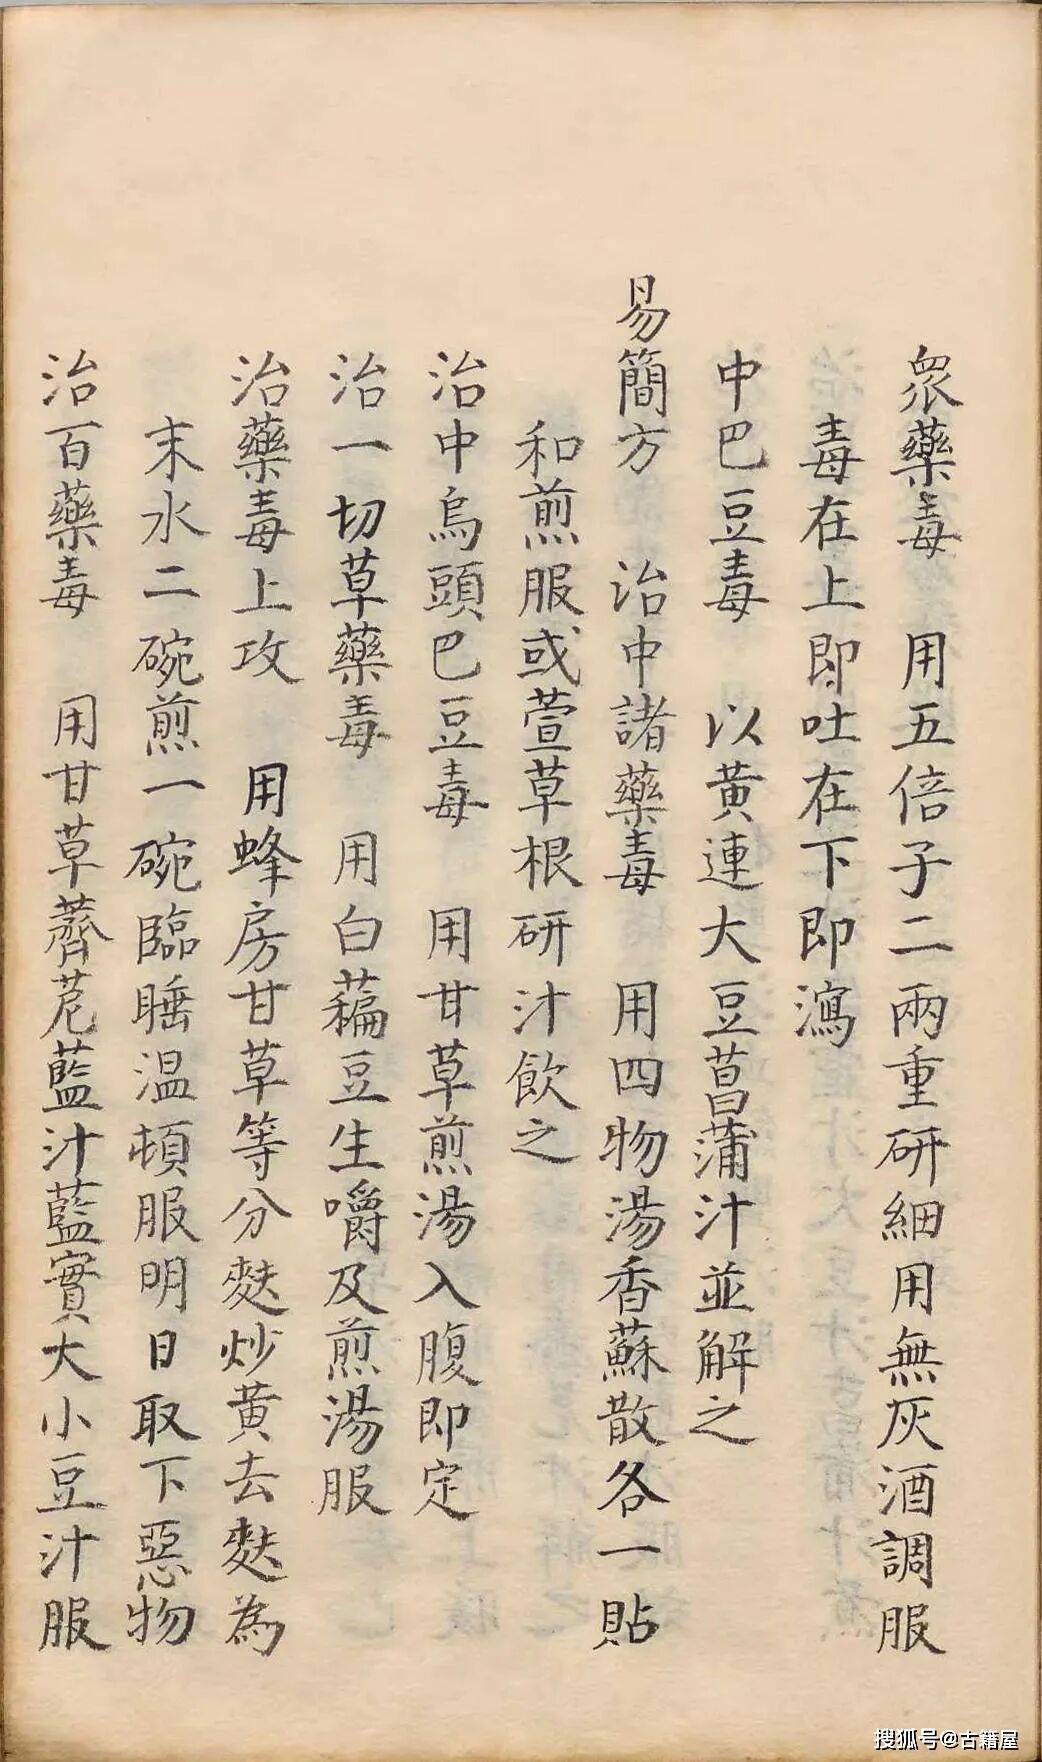 眾藥毒　用五倍子二兩重研細用無灰酒調服
毒在上即吐在下即瀉
中巴豆毒　以黃連大豆菖蒲汁並解之
易簡方　治中諸藥毒　用四物湯香蘇散各一貼
和煎服或萱草根研汁飲之
治中烏頭巴豆毒　用甘草煎湯入腹即定
治一切草藥毒　用白藊豆生嚼及煎湯服
治藥毒上攻　用蜂房甘草等分麩炒黃去麩為
末水二碗煎一碗臨睡溫頓服明日取下惡物
治百藥毒　用甘草薺苨藍汁藍實大小豆汁服
搜狐号@古籍屋